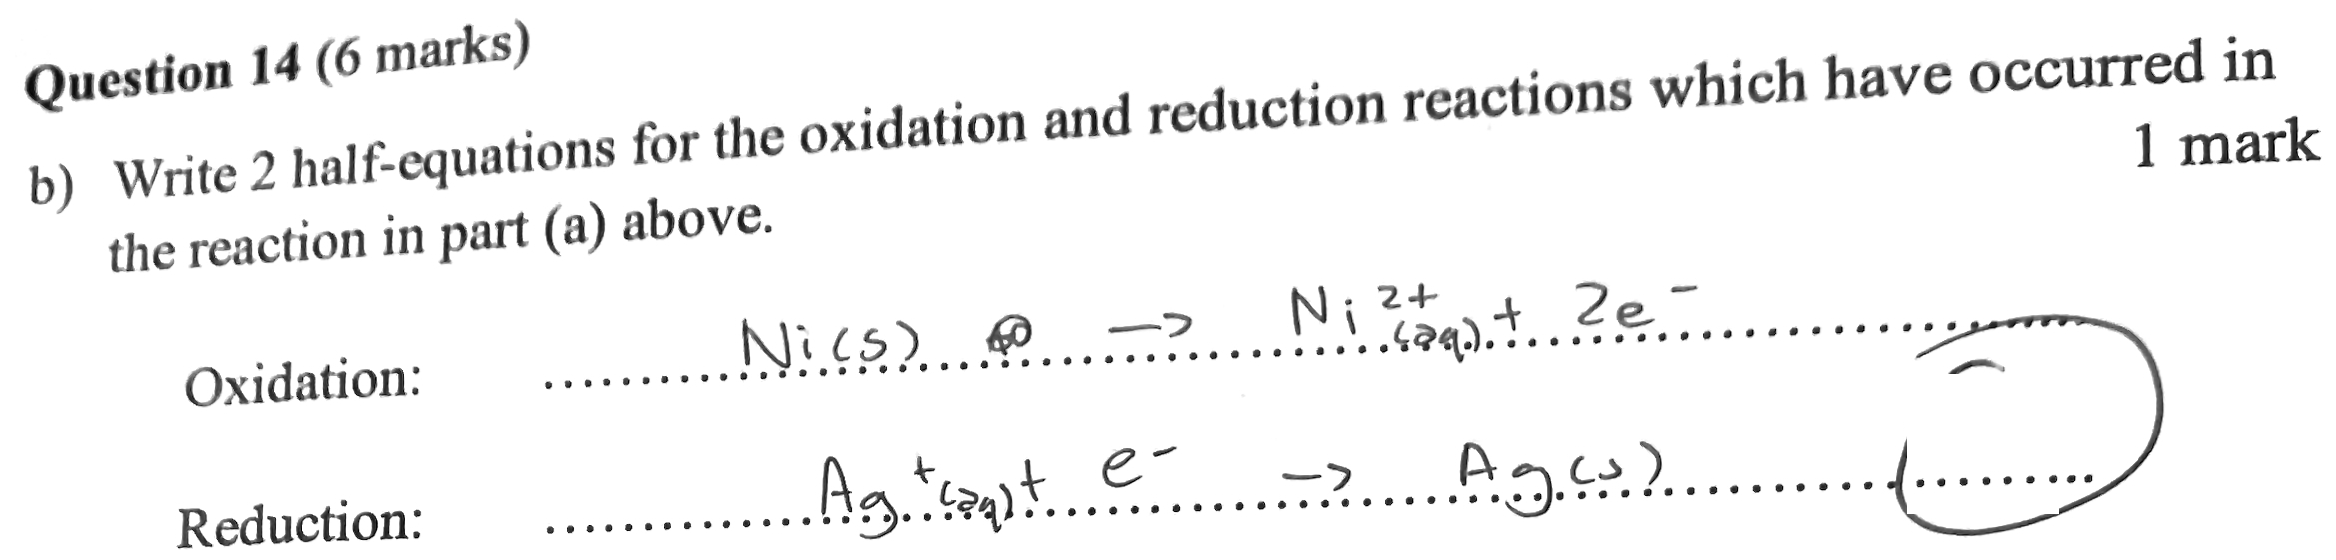 Question 14 (6 marks)
b) Write 2 half-equations for the oxidation and reduction reactions which have occurred in
the reaction in part (a) above.
1 mark
Oxidation: Ni(s) → Ni²⁺(aq) + 2e⁻
Reduction: Ag⁺(aq) + e⁻ → Ag(s)